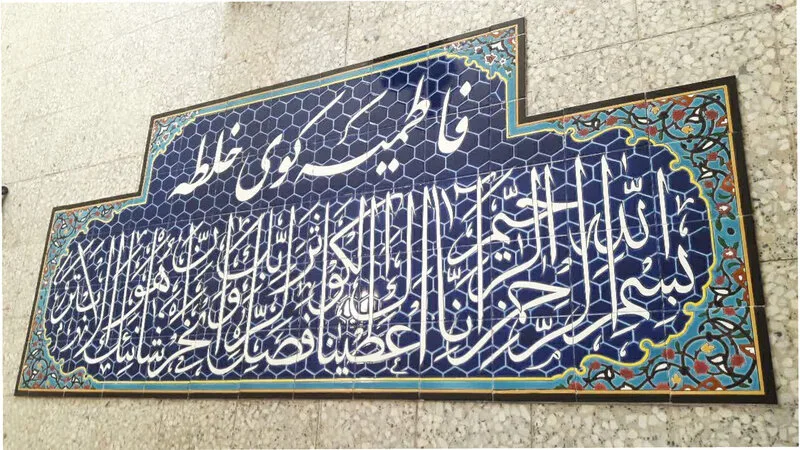 فاطمیه کوی خلطه
بسم الله الرحمن الرحیم انا اعطیناک الکوثر فصل لربک وانحر ان شانئک هو الابتر